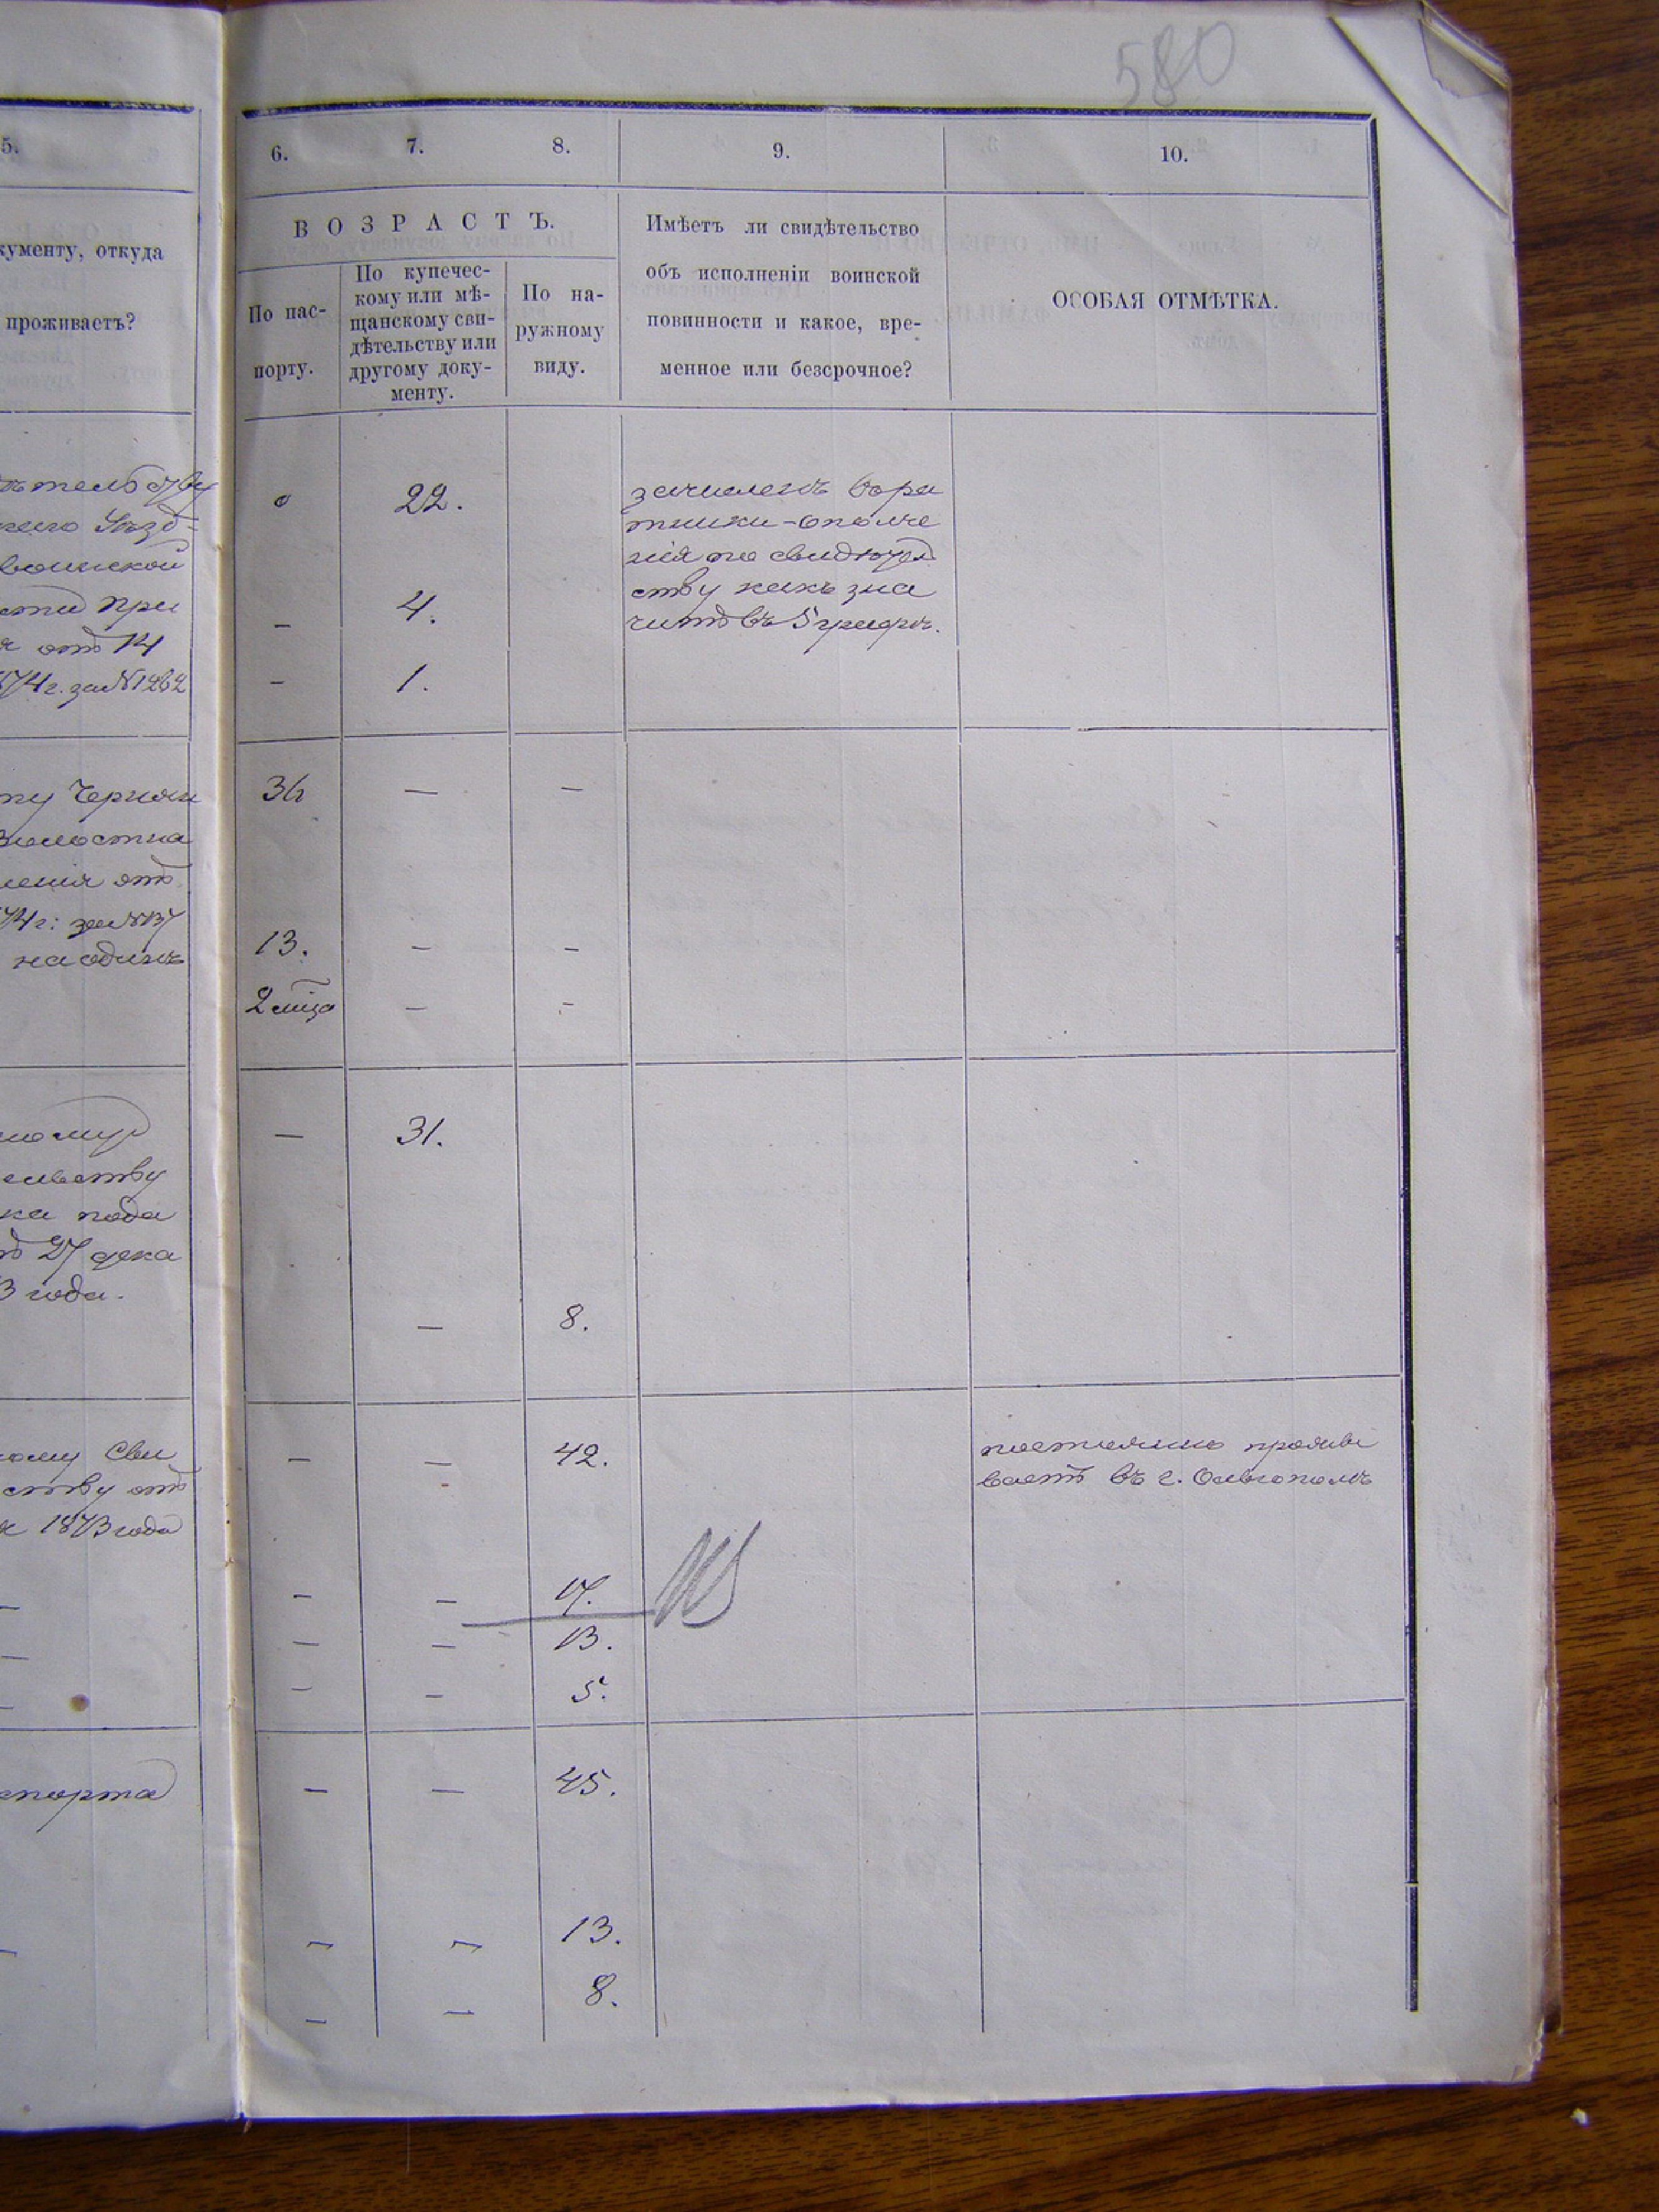 580
5.
6.
7.
8.
9.
10.
кументу, откуда
проживаетъ?
ВОЗРАСТЪ.
По пас-
порту.
По купечес-
кому или мѣ-
щанскому сви-
дѣтельству или
другому доку-
менту.
По на-
ружному
виду.
Имѣетъ ли свидѣтельство
объ исполненіи воинской
повинности и какое, вре-
менное или безсрочное?
ОСОБАЯ ОТМѢТКА.
тельству
Уѣзд-
воинской
при
отъ 14
74 г. за №1262
22.
зачисленъ вора
тники-ополче
нія по свидѣтел
ству какъ зна
читъ въ 5 графѣ.
– 4.
– 1.
волостна
ленія отъ
74 г: за №137
на одинъ
36 — —
13. – –
2 мѣца – –
ному
ельству
ка пода
27 дека
3 года.
— 31.
— 8.
ому Сви
ству отъ
1873 года
– — 42.
постоянно прожи
ваетъ въ г. Ольгополѣ
– – 17.
– – 13.
– – 5.
спорта
– — 45.
– – 13.
– – 8.